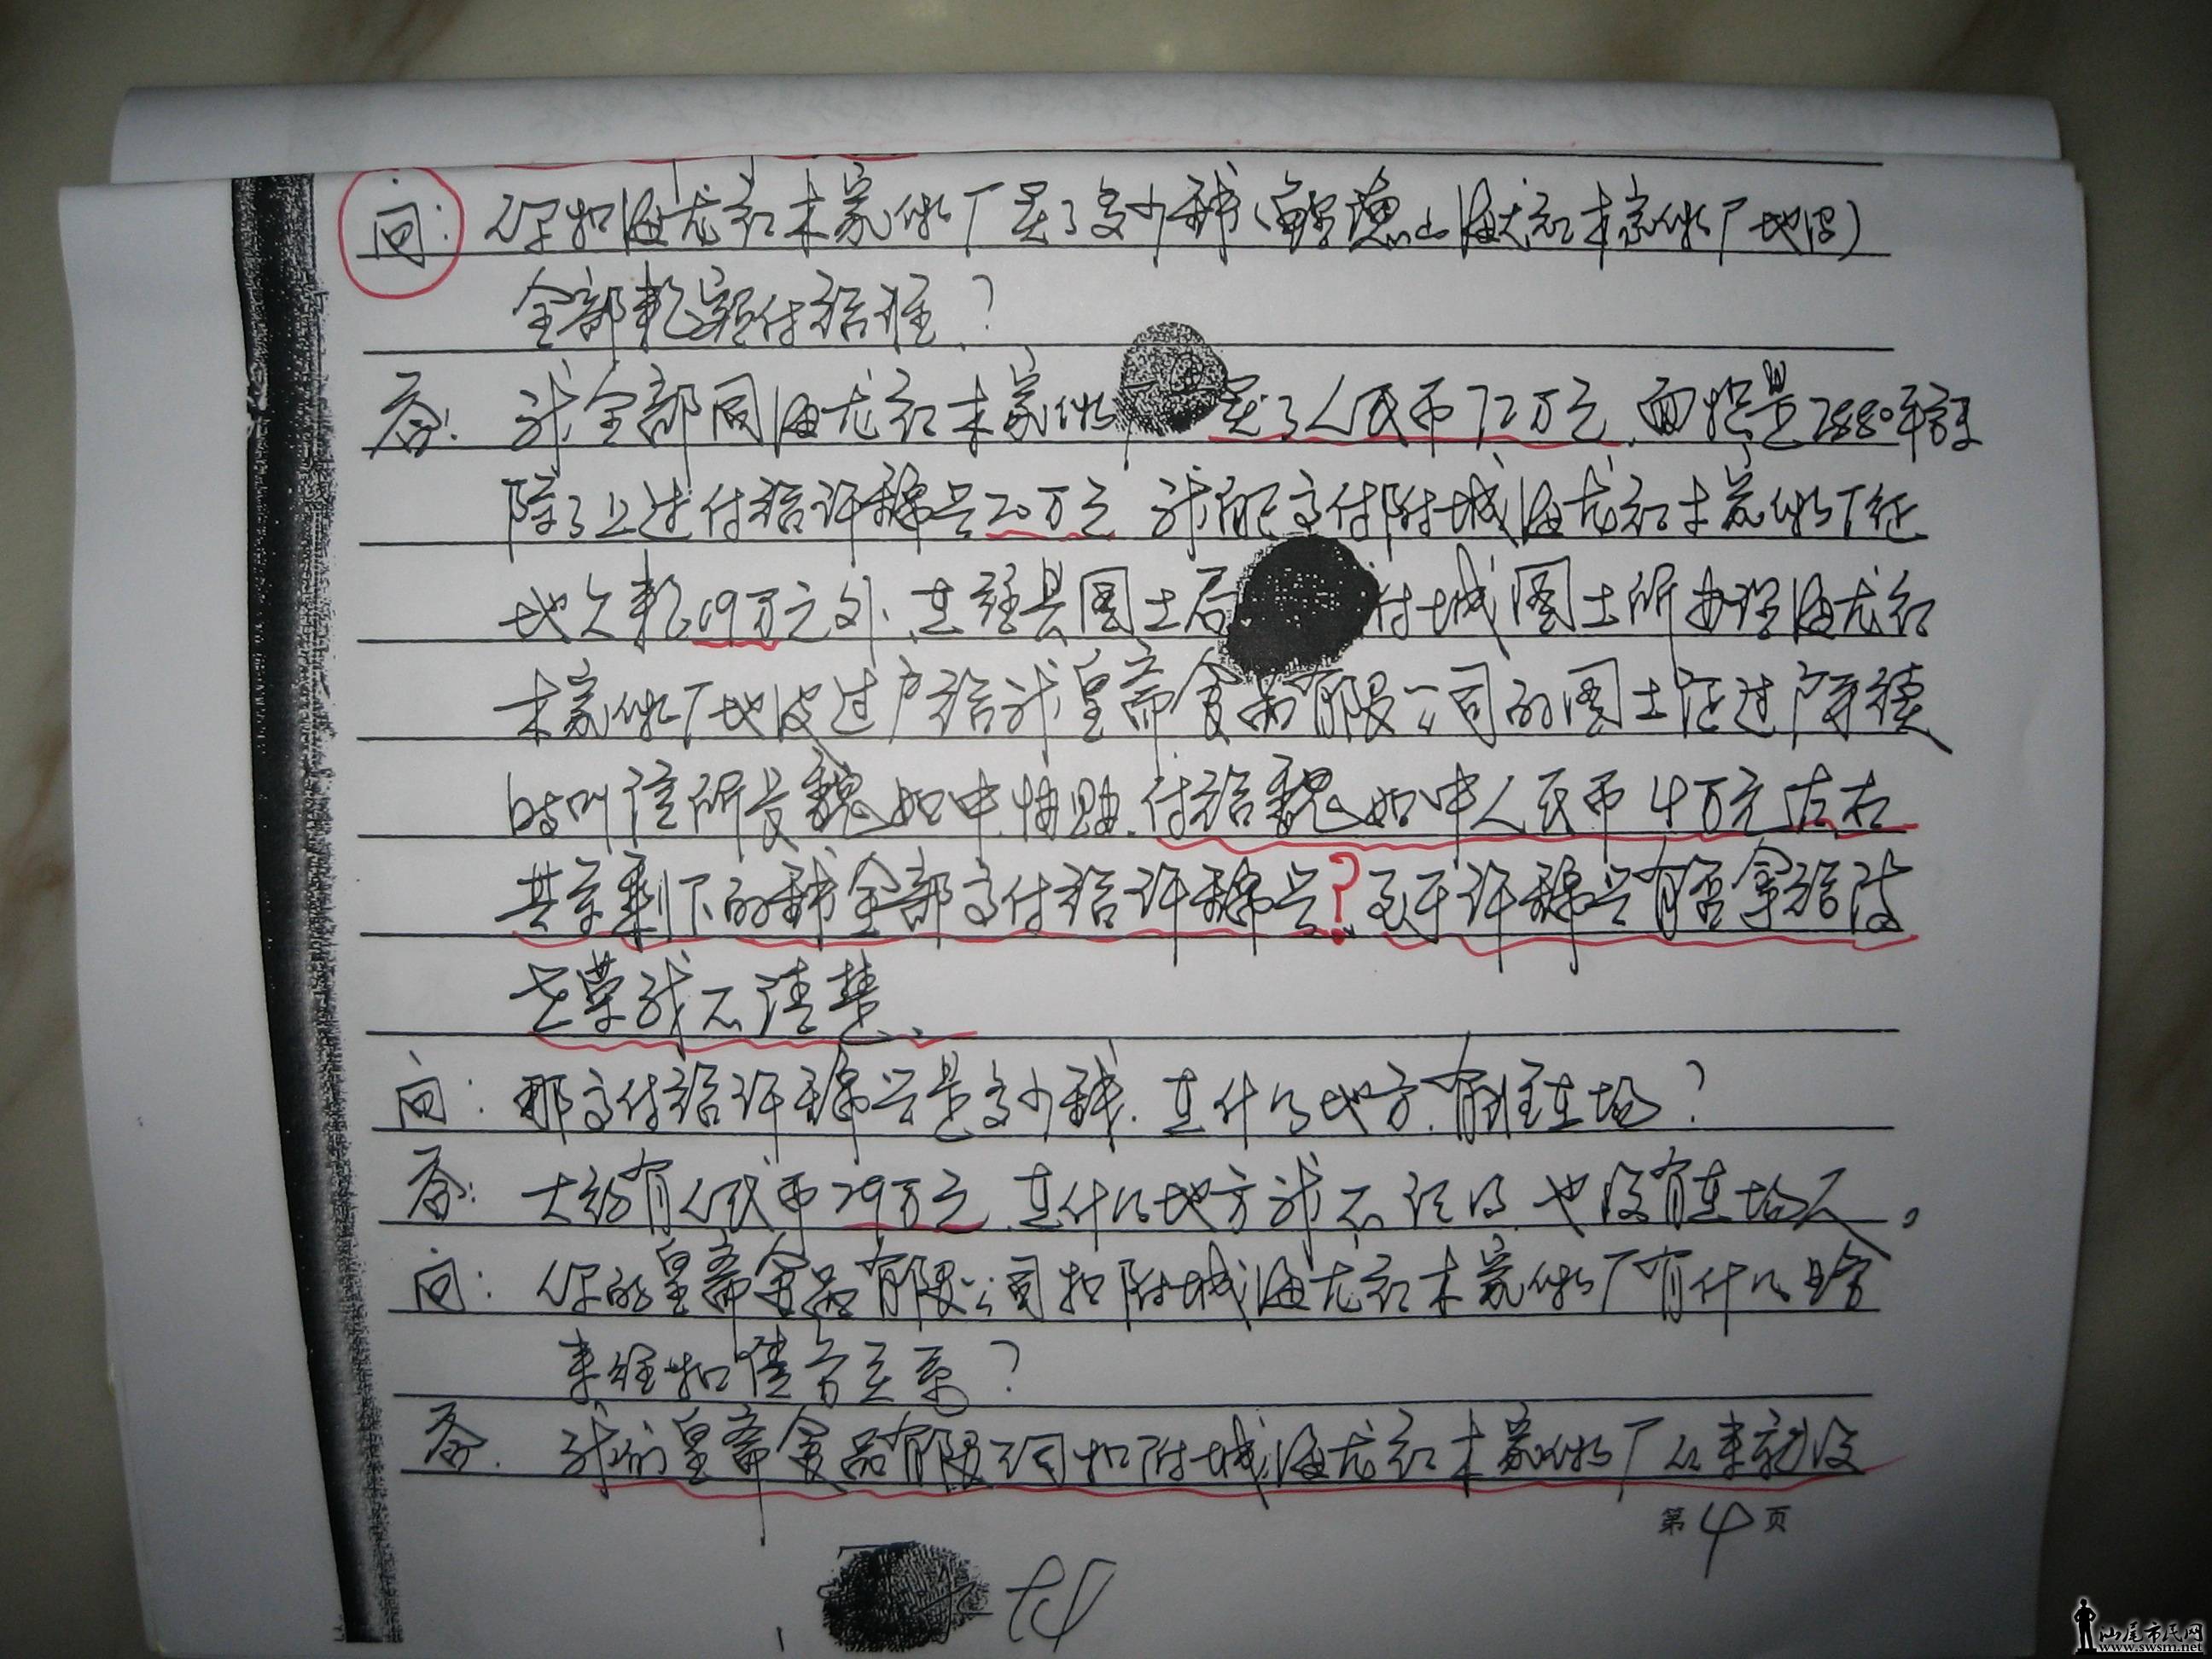 问: 你和海龙红木家俬厂买了多少钱(鲘 山海龙红木家俬厂地皮)
全部款额付给谁?
答: 我全部向海龙红木家俬厂 买了人民币72万元.面积是2880平方
除了上述付给许穆兴20万元 我能交付附城海龙红木家俬厂征
地欠款19万元外.在经县国土局 附城国土所办理海龙红
木家俬厂地皮过户给我皇斋食品有限公司的国土证过户手续
时叫信所长魏如中协助.付给魏如中人民币4万元左右
其余剩下的钱全部交付给许穆兴?至于许穆兴有否拿给陈
老荣我不清楚.
问: 那交付给许穆兴是多少钱.在什么地方.有谁在场?
答: 大约有人民币29万元.在什么地方我不记得.也没有在场人。
问: 你的皇斋食品有限公司和附城海龙红木家俬厂有什么
来往和债务关系?
答. 我们皇斋食品有限公司和附城海龙红木家俬厂从来就没
第4页
汕尾市民网
www.swsm.net